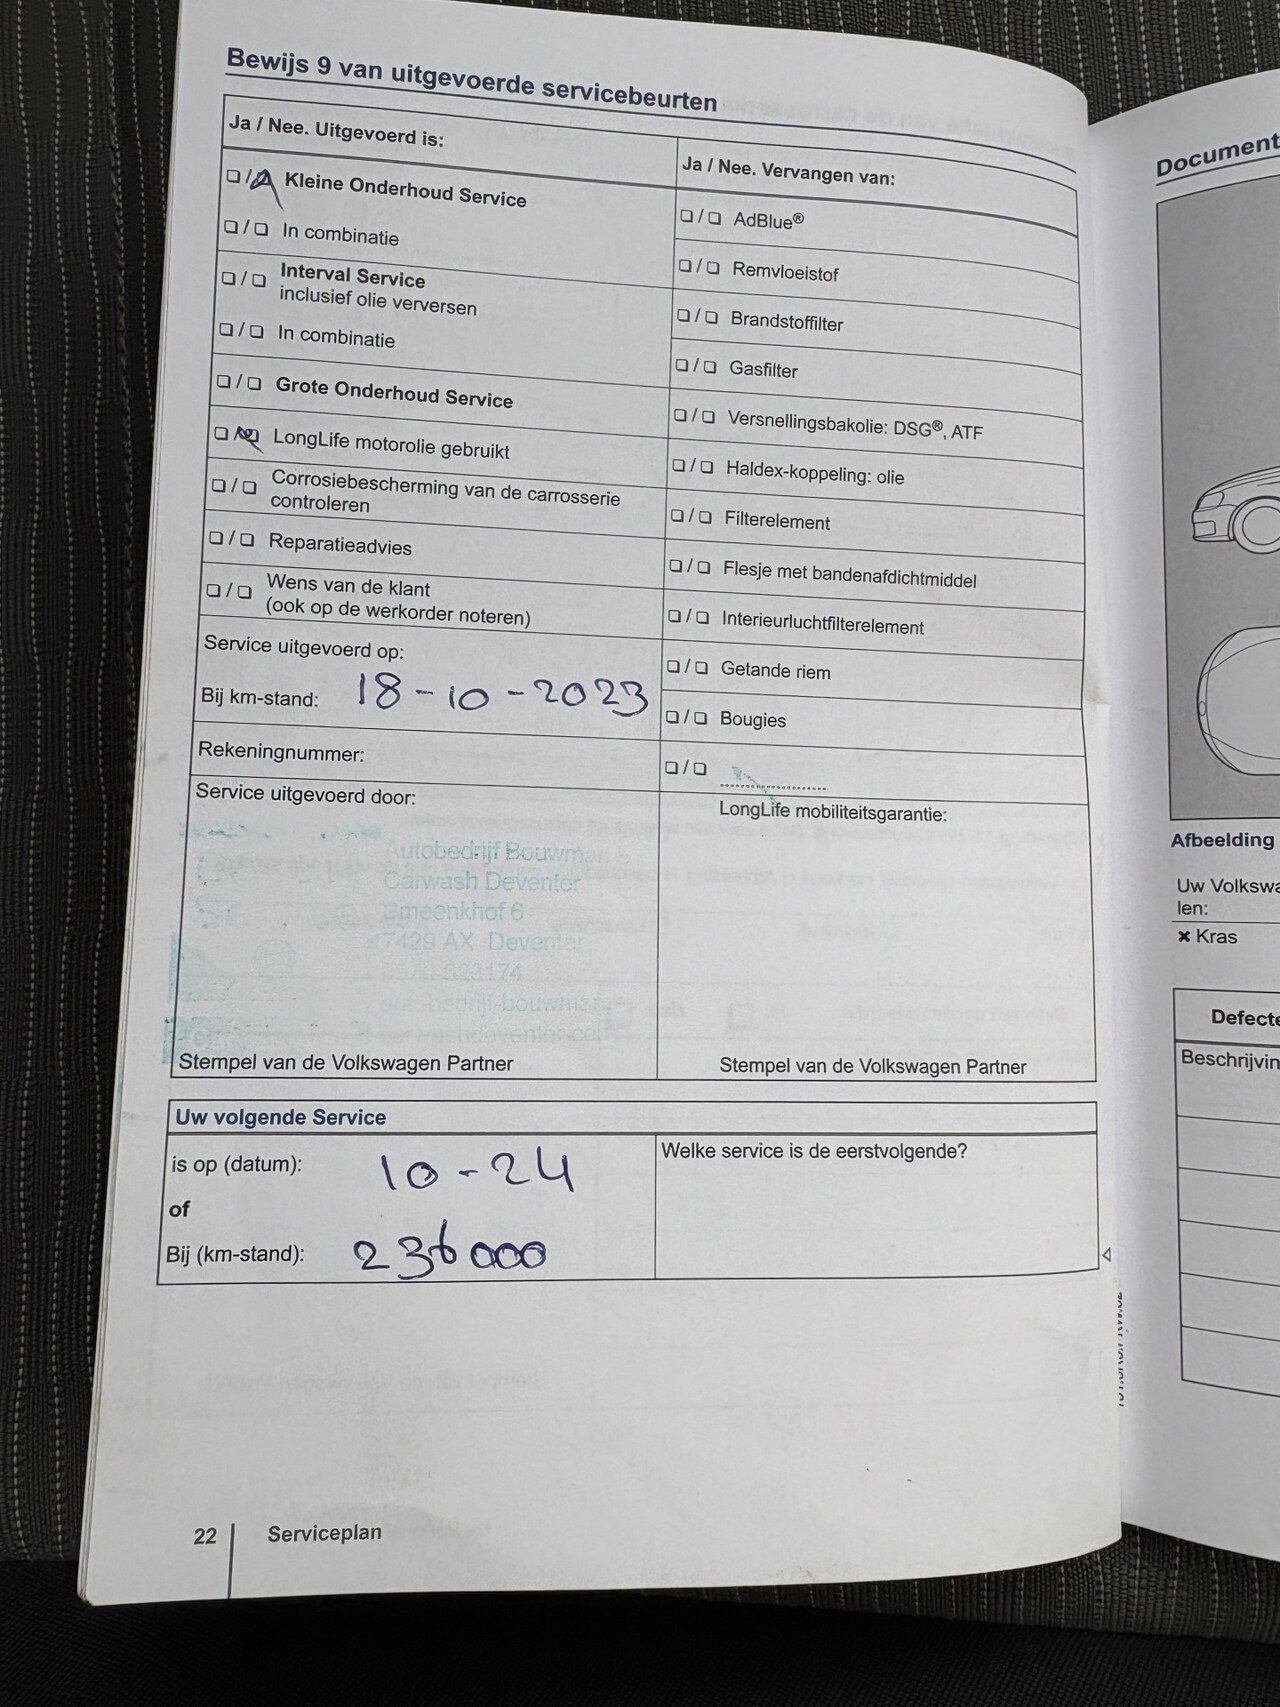 Bewijs 9 van uitgevoerde servicebeurten
Ja / Nee. Uitgevoerd is:
Kleine Onderhoud Service
In combinatie
Interval Service
inclusief olie verversen
In combinatie
Grote Onderhoud Service
LongLife motorolie gebruikt
Corrosiebescherming van de carrosserie
controleren
Reparatieadvies
Wens van de klant
(ook op de werkorder noteren)
Service uitgevoerd op:
Bij km-stand: 18-10-2023
Rekeningnummer:
Service uitgevoerd door:
Autobedrijf Bouwman
Carwash Deventer
Smeenkhof 6
7429 AX Deventer
623174
autobedrijf-bouwman
carwashdeventer.com
Stempel van de Volkswagen Partner
Ja / Nee. Vervangen van:
AdBlue®
Remvloeistof
Brandstoffilter
Gasfilter
Versnellingsbakolie: DSG®, ATF
Haldex-koppeling: olie
Filterelement
Flesje met bandenafdichtmiddel
Interieurluchtfilterelement
Getande riem
Bougies
LongLife mobiliteitsgarantie:
Stempel van de Volkswagen Partner
Uw volgende Service
is op (datum): 10-24
of
Bij (km-stand): 236000
Welke service is de eerstvolgende?
22 Serviceplan
Document
Afbeelding
Uw Volkswa
len:
× Kras
Defecte
Beschrijvin